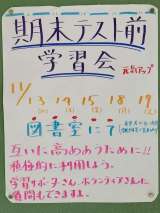 期末テスト前
学習会
11/
13 14 15 18 19
図書室にて
互いに高めあうために!!
積極的に利用しよう。
学習サポーターさん、ボランティアさんに
質問もできますよ。